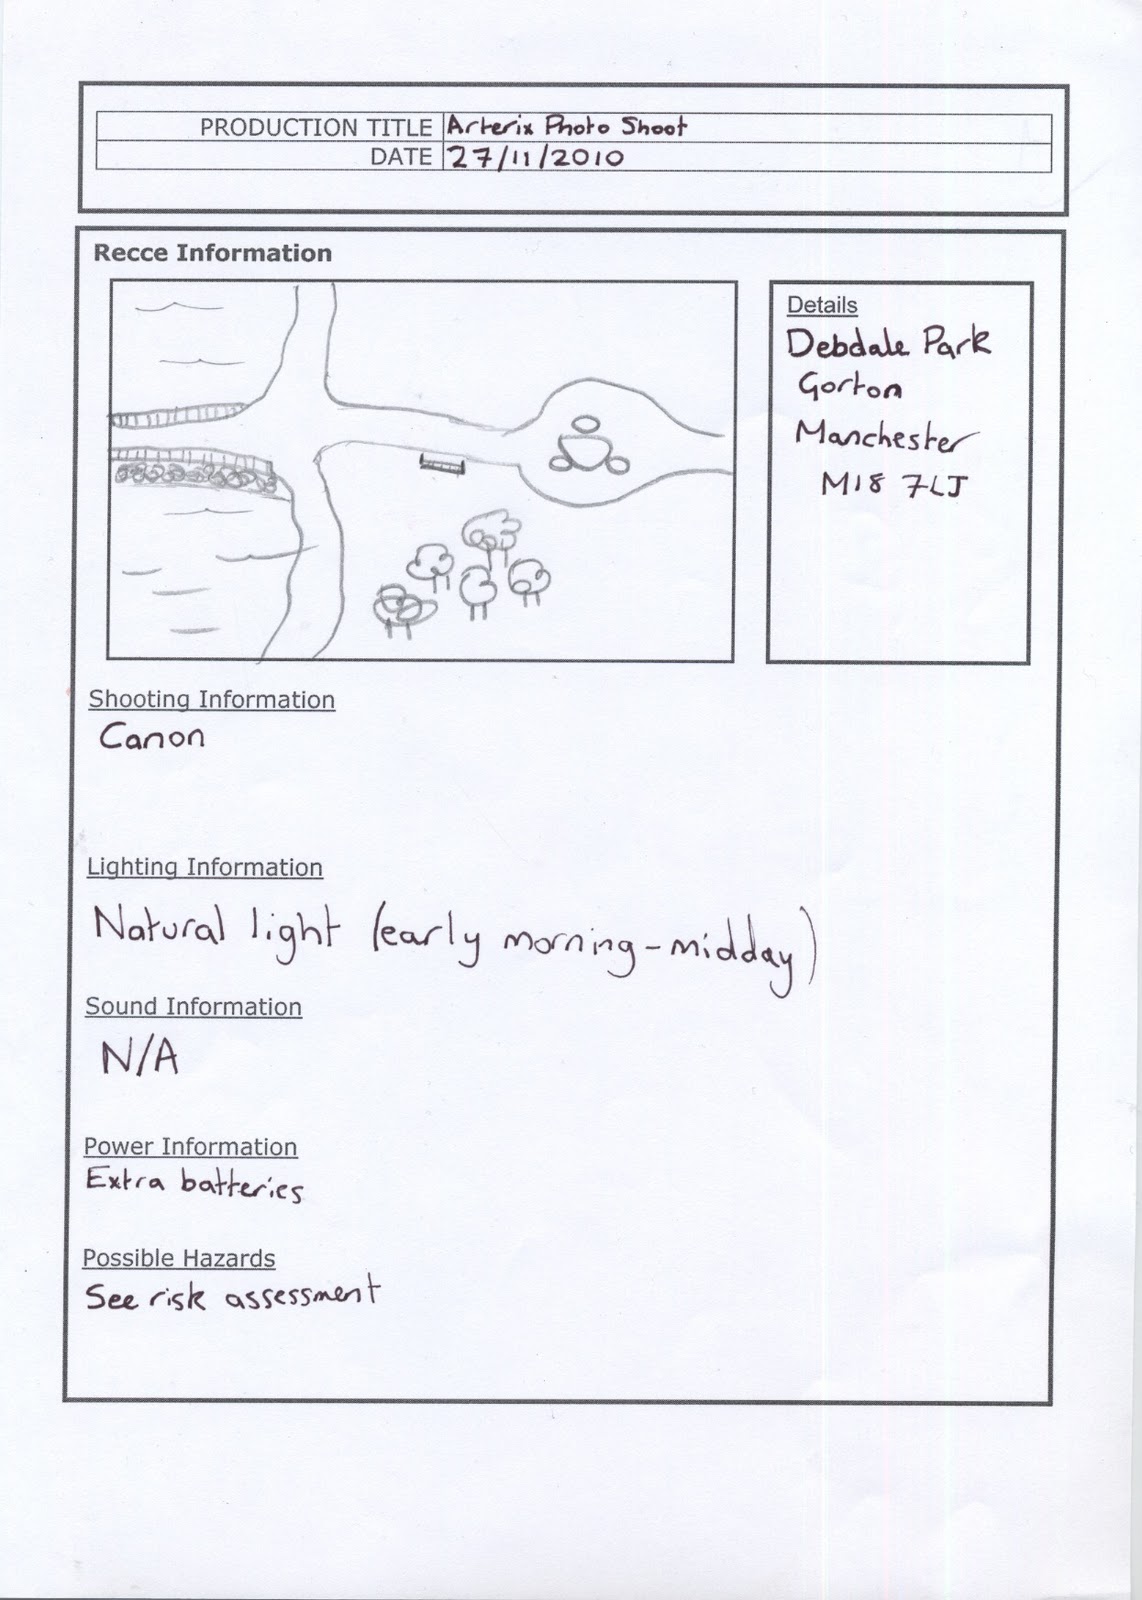 PRODUCTION TITLE Arterix Photo Shoot
DATE 27/11/2010
Recce Information
Details
Debdale Park
Gorton
Manchester
M18 7LJ
Shooting Information
Canon
Lighting Information
Natural light (early morning-midday)
Sound Information
N/A
Power Information
Extra batteries
Possible Hazards
See risk assessment